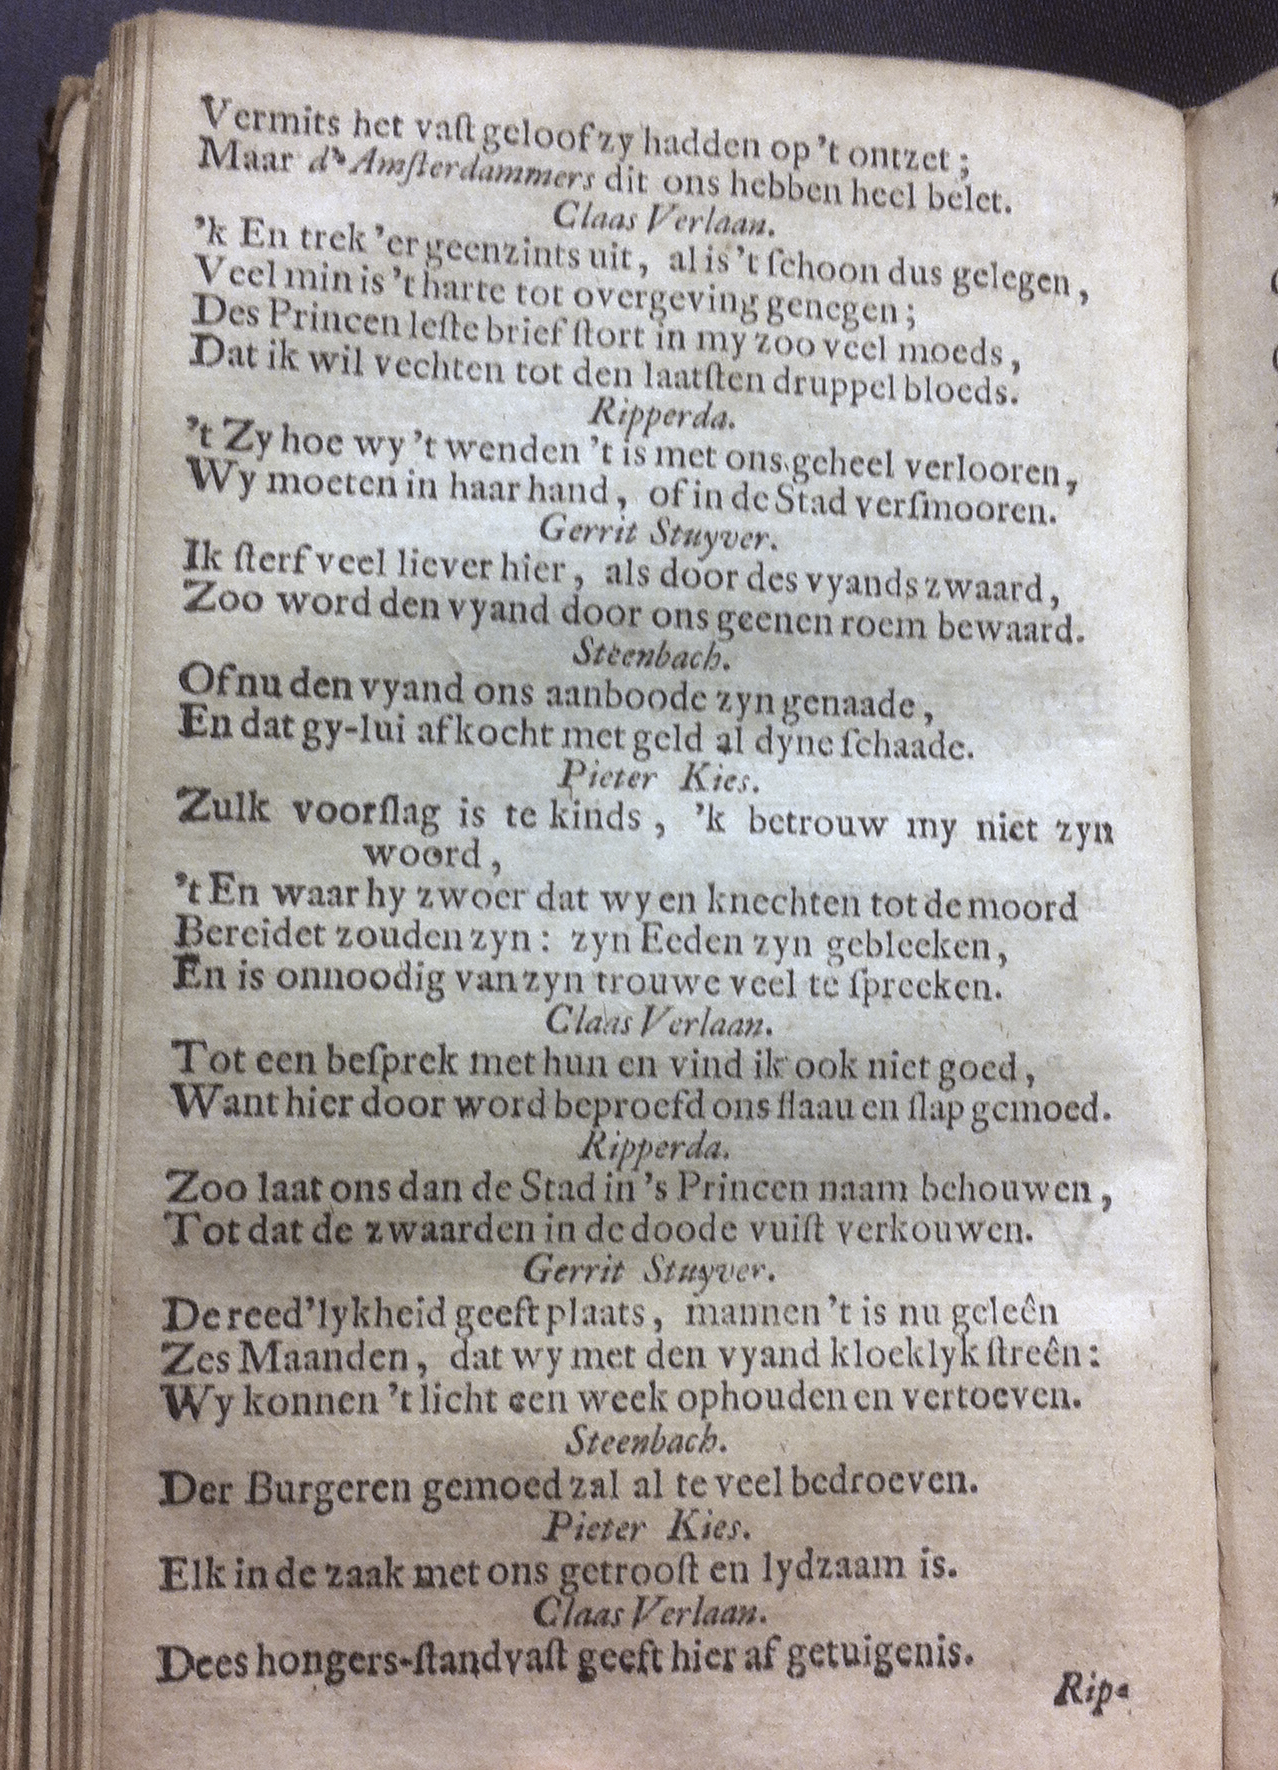 Vermits het vaſt geloof zy hadden op 't ontzet ;
Maar d' Amſterdammers dit ons hebben heel belet.
Claas Verlaan.
'k En trek 'er geenzints uit, al is 't ſchoon dus gelegen,
Veel min is 't harte tot overgeving genegen ;
Des Princen leſte brief ſtort in my zoo veel moeds,
Dat ik wil vechten tot den laatſten druppel bloeds.
Ripperda.
't Zy hoe wy 't wenden 't is met ons geheel verlooren,
Wy moeten in haar hand, of in de Stad verſmooren.
Gerrit Stuyver.
Ik ſterf veel liever hier, als door des vyands zwaard,
Zoo word den vyand door ons geenen roem bewaard.
Steenbach.
Of nu den vyand ons aanboode zyn genaade,
En dat gy-lui afkocht met geld al dyne ſchaade.
Pieter Kies.
Zulk voorſlag is te kinds, 'k betrouw my niet zyn
woord,
't En waar hy zwoer dat wy en knechten tot de moord
Bereidet zouden zyn : zyn Eeden zyn gebleeken,
En is onnoodig van zyn trouwe veel te ſpreeken.
Claas Verlaan.
Tot een beſprek met hun en vind ik ook niet goed,
Want hier door word beproefd ons flaau en ſlap gemoed.
Ripperda.
Zoo laat ons dan de Stad in 's Princen naam behouwen,
Tot dat de zwaarden in de doode vuiſt verkouwen.
Gerrit Stuyver.
De reed'lykheid geeft plaats, mannen 't is nu geleên
Zes Maanden, dat wy met den vyand kloeklyk ſtreên :
Wy konnen 't licht een week ophouden en vertoeven.
Steenbach.
Der Burgeren gemoed zal al te veel bedroeven.
Pieter Kies.
Elk in de zaak met ons getrooſt en lydzaam is.
Claas Verlaan.
Dees hongers-ſtandvaſt geeft hier af getuigenis.
Rip-